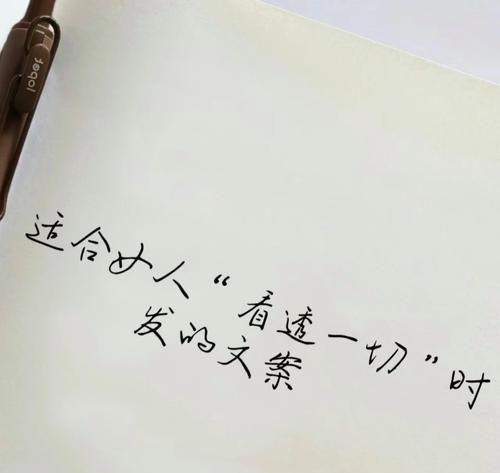 适合女人“看透一切”时
发的文案